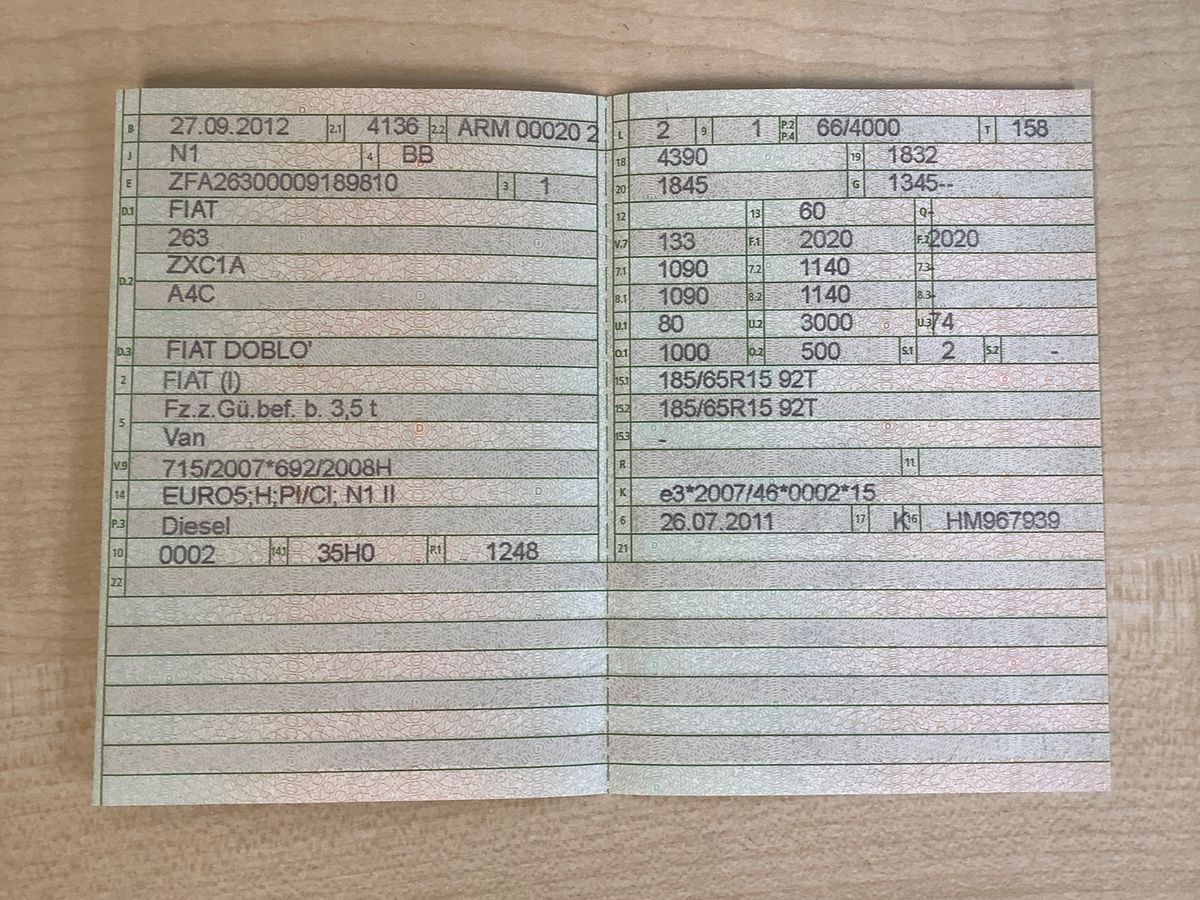 B 27.09.2012 2.1 4136 2.2 ARM 00020 2
J N1 4 BB
E ZFA26300009189810 3 1
D.1 FIAT
263
D.2 ZXC1A
A4C
D.3 FIAT DOBLO'
2 FIAT (I)
5 Fz.z.Gü.bef. b. 3,5 t
Van
V.9 715/2007*692/2008H
14 EURO5;H;PI/CI; N1 II
P.3 Diesel
10 0002 14.1 35H0 P.1 1248
22
L 2 9 1 P.2 P.4 66/4000 T 158
18 4390 19 1832
20 1845 G 1345--
12 13 60 Q -
V.7 133 F.1 2020 F.2 2020
7.1 1090 7.2 1140 7.3 -
8.1 1090 8.2 1140 8.3 -
U.1 80 U.2 3000 U.3 74
O.1 1000 O.2 500 S.1 2 S.2 -
15.1 185/65R15 92T
15.2 185/65R15 92T
15.3 -
R 11
K e3*2007/46*0002*15
6 26.07.2011 17 K 16 HM967939
21